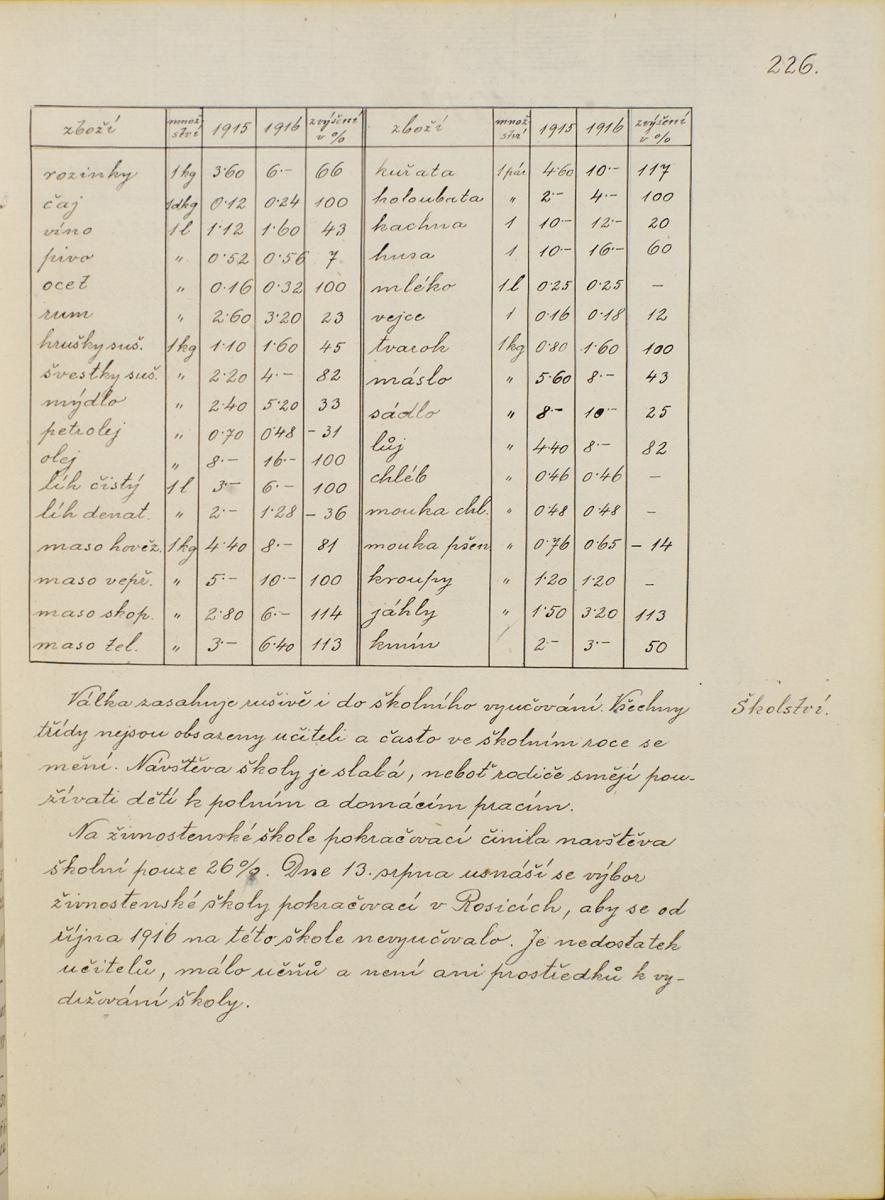 226.
zboží množství 1915 1916 zvýšení v % zboží množství 1915 1916 zvýšení v %
rozinky 1 kg 3·60 6·- 66 kuřata 1 pár 4·60 10·- 117
čaj 1 dkg 0·12 0·24 100 holoubata " 2·- 4·- 100
víno 1 l 1·12 1·60 43 kachna 1 10·- 12·- 20
pivo " 0·52 0·56 7 husa 1 10·- 16·- 60
ocet " 0·16 0·32 100 mléko 1 l 0·25 0·25 -
rum " 2·60 3·20 23 vejce 1 0·16 0·18 12
hrušky suš. 1 kg 1·10 1·60 45 tvaroh 1 kg 0·80 1·60 100
švestky suš. " 2·20 4·- 82 máslo " 5·60 8·- 43
mýdlo " 2·40 5·20 33 sádlo " 8·- 10·- 25
petrolej " 0·70 0·48 - 31 lůj " 4·40 8·- 82
olej " 8·- 16·- 100 chléb " 0·46 0·46 -
líh čistý 1 l 3·- 6·- 100 mouka chl. " 0·48 0·48 -
líh denat. " 2·- 1·28 - 36 mouka pšen. " 0·76 0·65 - 14
maso hověz. 1 kg 4·40 8·- 81 kroupy " 1·20 1·20 -
maso vepř. " 5·- 10·- 100 jáhly " 1·50 3·20 113
maso skop. " 2·80 6·- 114 kmín 2·- 3·- 50
maso tel. " 3·- 6·40 113
Válka zasahuje rušivě i do školního vyučování. Všechny
Školství.
třídy nejsou obsazeny učiteli a často ve školním roce se
mění. Návštěva školy je slabá, neboť rodiče smějí pou-
žívati dětí k polním a domácím pracím.
Na živnostenské škole pokračovací činila navštěva
školní pouze 26%. Dne 13. srpna usnáší se výbor
živnostenské školy pokračovací v Rosicích, aby se od
října 1916 na této škole nevyučovalo. Je nedostatek
učitelů, málo učňů a není ani prostředků k vy-
držování školy.